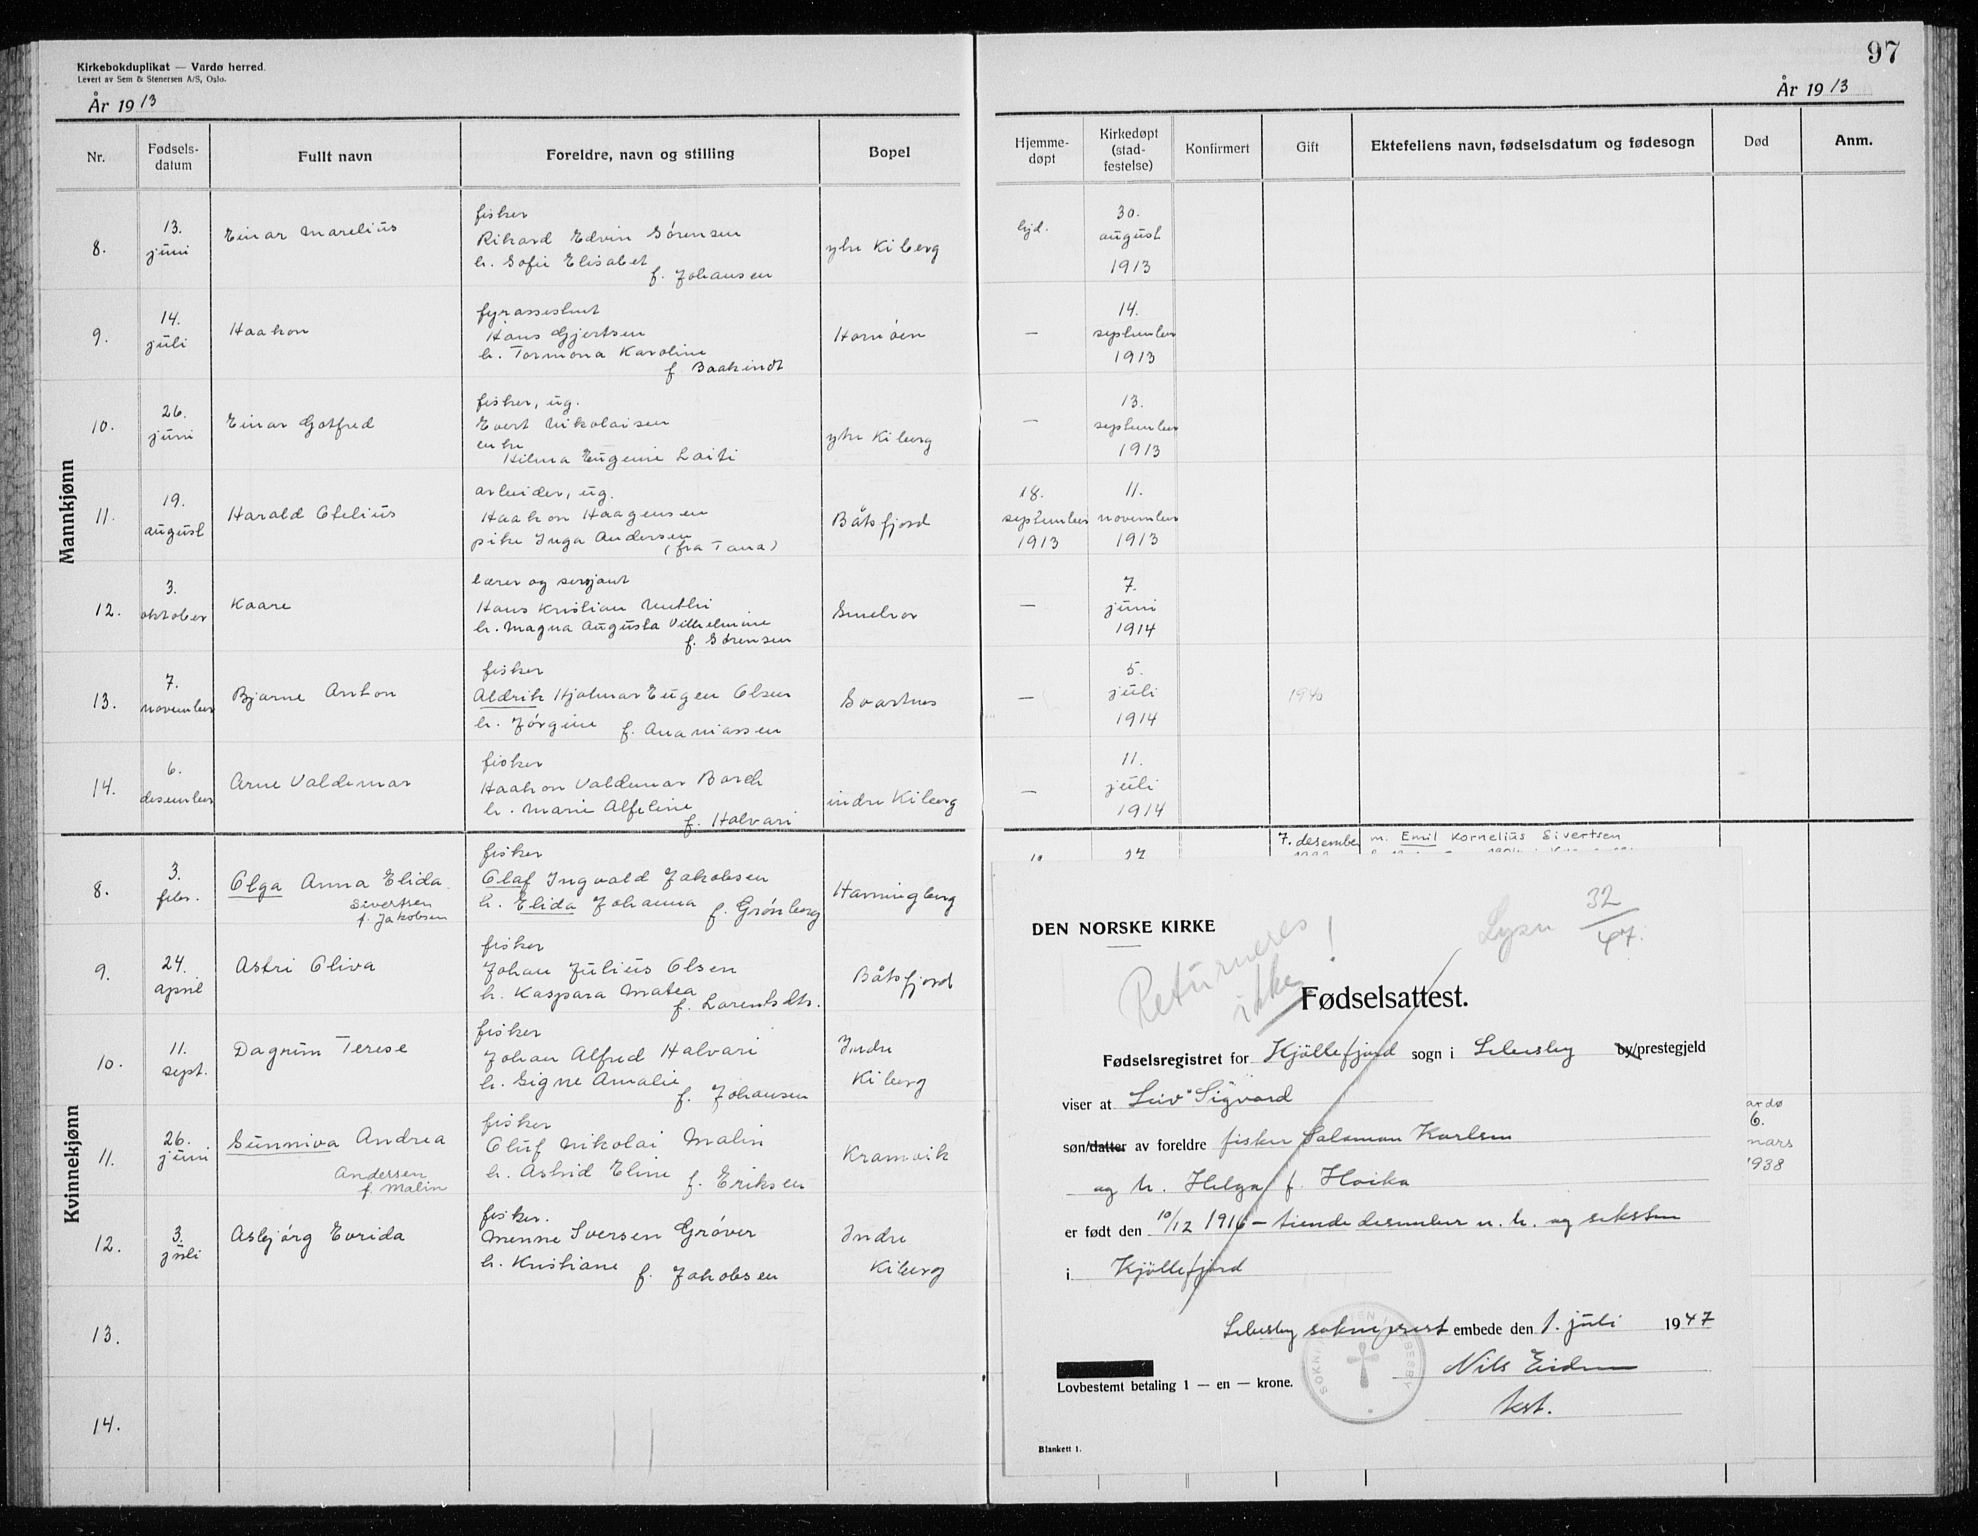 Kirkebokduplikat — Vardø herred.
Levert av Sem & Stenersen A/S, Oslo.
År 1913
97
År 1913
Nr.
Fødsels-
datum
Fullt navn
Foreldre, navn og stilling
Bopel
Hjemme-
døpt
Kirkedøpt
(stad-
festelse)
Konfirmert
Gift
Ektefellens navn, fødselsdatum og fødesogn
Død
Anm.
Mannkjønn
8.
13.
juni
Einar Marelius
fisker
Rikard Edvin Sørensen
h. Sofie Elisabet
f. Johansen
ytre Kiberg
hjd.
30.
august
1913
9.
14.
juli
Haakon
fyrassistent
Hans Gjertsen
h. Tormona Karoline
f. Baakindt
Hornøen
—
14.
september
1913
10.
26.
juni
Einar Gotfred
fisker, ug.
Evert Nikolaisen
enke
Hilma Eugenie Laiti
ytre Kiberg
—
13.
september
1913
11.
19.
august
Harald Ofelius
arbeider, ug.
Haakon Haagensen
pike Inga Andersen
(fra Tana)
Båtsfjord
18.
september
1913
11.
november
1913
12.
3.
oktober
Kaare
lærer og sersjant
Hans Kristian
h. Magna Augusta Vilhelmine
f. Sørensen
Smelror
—
7.
juni
1914
13.
7.
november
Bjarne Anton
fisker
Aldrik Hjalmar Eugen Olsen
h. Jørgine f. Ananiassen
Svartnes
—
5.
juli
1914
1940
14.
6.
desember
Arne Valdemar
fisker
Haakon Valdemar Borch
h. Marie Alfeline
f. Halvari
indre Kiberg
—
11.
juli
1914
Kvinnekjønn
8.
3.
febr.
Olga Anna Elida
Sivertsen
f. Jakobsen
fisker
Olaf Ingvald Jakobsen
h. Elida Johanna f. Grønberg
Havningberg
7. desember
m. Emil Kornelius Sivertsen
9.
24.
april
Astri Oliva
fisker
Johan Julius Olsen
h. Kaspara Matea
f. Lorentsdtr.
Båtsfjord
10.
11.
sept.
Dagrun Terese
fisker
Johan Alfred Halvari
h. Signe Amalie
f. Johansen
Indre
Kiberg
11.
26.
juni
Sunniva Andrea
Andersen
f. Malin
fisker
Oluf Nikolai Malin
h. Astrid Eline
f. Eriksen
Kramvik
ardø
6.
mars
1938
12.
3.
juli
Asbjørg Evrida
fisker.
Menne Sversen Grøver
h. Kristiane f. Jakobsen
Indre
Kiberg
13.
14.
DEN NORSKE KIRKE
Returneres
ikke!
Lysn 32/47.
Fødselsattest.
Fødselsregistret for Kjöllefjord sogn i Lebesby by/prestegjeld
viser at Leiv Sigvard
søn/datter av foreldre fisker Salamon Karlsen
og h. Helga f. Hoika
er født den 10/12 1916 – tiende desember n. h. og seksten
i Kjöllefjord
Lebesby sokneprest embede den 1. juli 1947
Nils
Lovbestemt betaling 1 — en — krone.
Blankett 1.